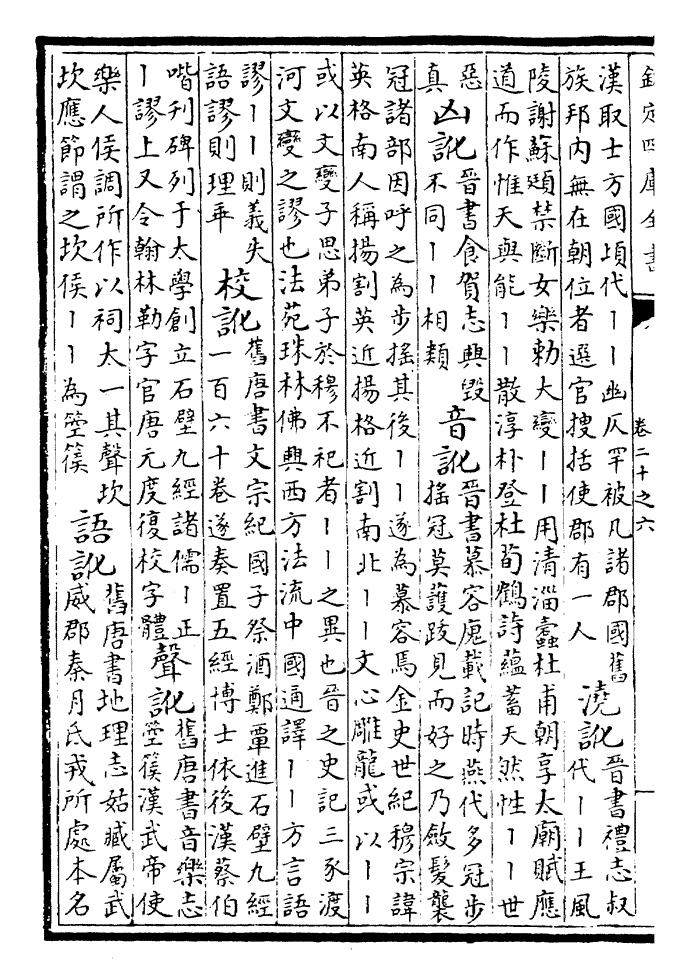 欽定四庫全書
卷二十之六
漢取士方國頃代丨丨幽仄罕被凡諸郡國舊
族邦內無在朝位者選官搜括使郡有一人
澆訛
晉書禮志叔
代丨丨王風
陵謝蘇頲禁斷女樂勅大變丨丨用清淄蠹杜甫朝享太廟賦應
道而作惟天與能丨丨散淳朴登杜荀鶴詩蘊蓄天然性丨丨世
惡
真
凶訛
晉書食賀志興毀
不同丨丨相類
音訛
晉書慕容廆載記時燕代多冠步
搖冠莫護跋見而好之乃斂髮襲
冠諸部因呼之為步搖其後丨丨遂為慕容馬金史世紀穆宗諱
英格南人稱揚割英近揚格近割南北丨丨文心雕龍或以丨丨
或以文變子思弟子於穆不祀者丨丨之異也晉之史記三豕渡
河文變之謬也法苑珠林佛興西方法流中國通譯丨丨方言語
謬丨丨則義失
語謬則理乖
校訛
舊唐書文宗紀國子祭酒鄭覃進石壁九經
一百六十卷遂奏置五經博士依後漢蔡伯
喈刊碑列于太學創立石壁九經諸儒丨正
丨謬上又令翰林勒字官唐元度復校字體
聲訛
舊唐書音樂志
箜篌漢武帝使
樂人侯調所作以祠太一其聲坎
坎應節謂之坎侯丨丨為箜篌
語訛
舊唐書地理志姑臧屬武
威郡秦月氐戎所處本名